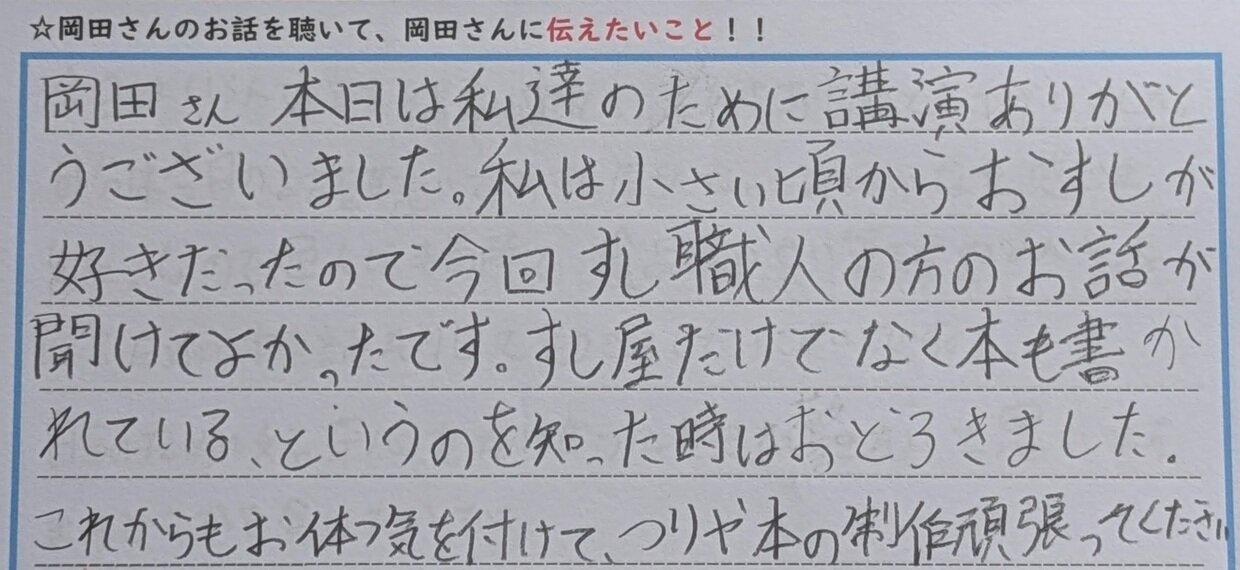 ☆岡田さんのお話を聴いて、岡田さんに伝えたいこと！！
岡田さん 本日は私達のために講演ありがと
うございました。私は小さい頃からおすしが
好きだったので今回すし職人の方のお話が
聞けてよかったです。すし屋だけでなく本も書か
れている、というのを知った時はおどろきました。
これからもお体つ気を付けて、つりや本の制作頑張ってください